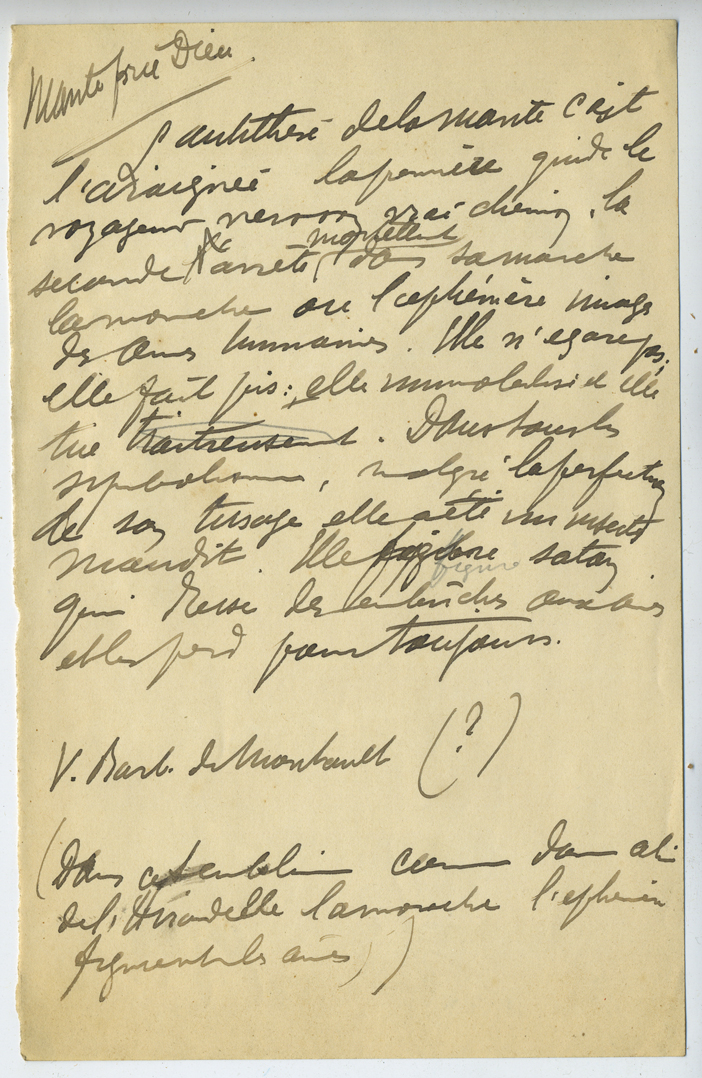 Mante prie Dieu.
L'antithèse de la mante c'est
l'araignée la première guide le
voyageur vers son vrai chemin, la
mortellement
seconde l'arrête dans sa marche
la mouche ou l'éphémère image
des âmes humaines. Elle n'égare pas;
elle fait pis: elle immobilise et elle
tue traitreusement. Dans tous les
symbolismes, malgré la perfection
de son tissage elle a été un insecte
maudit. Elle figure satan
qui dresse des embûches aux âmes
et les perd pour toujours.
V. Barb. de Montault (?)
(Dans cet emblème comme dans
de l'Hirondelle la mouche l'éphémère
figurent les âmes)